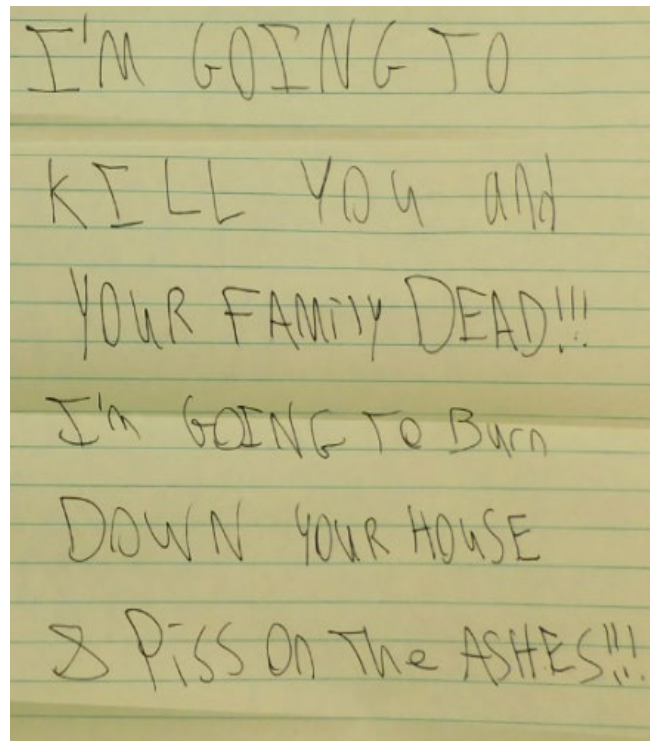 I'M GOING TO
KILL YOU and
YOUR FAMily DEAD!!!
I'm GOING To Burn
DOWN YOUR HOUSE
& PiSS On The ASHES!!!